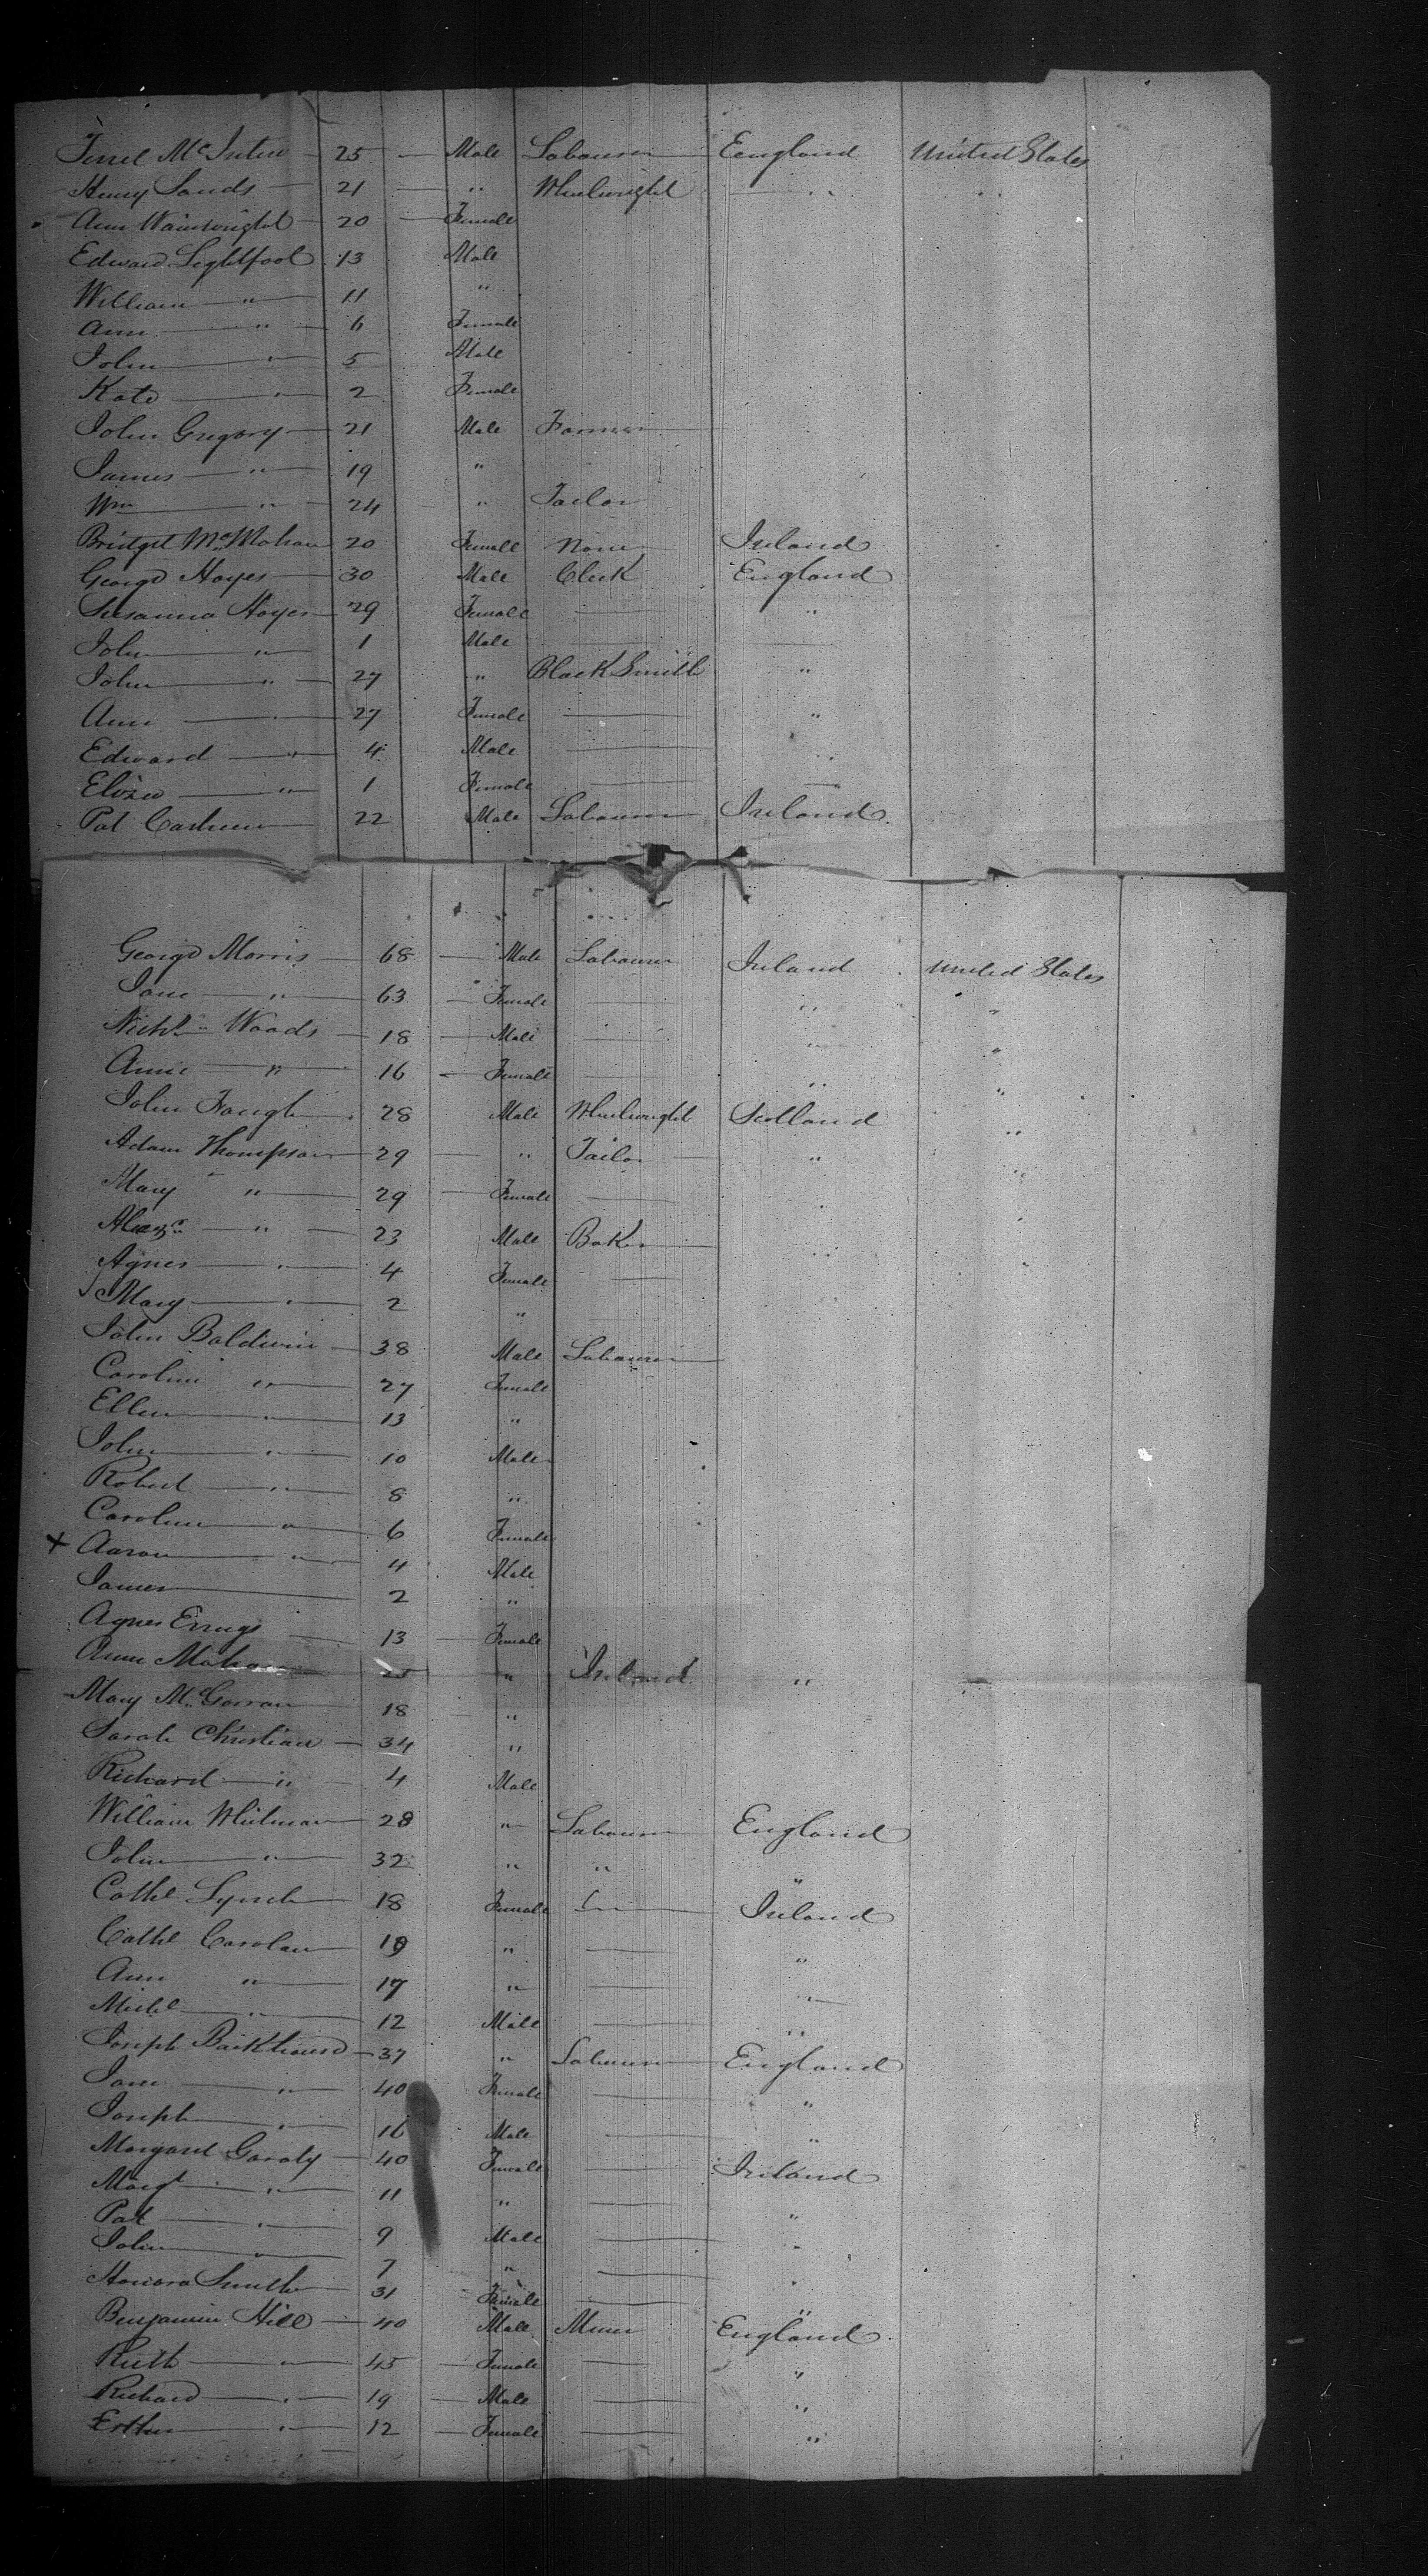 Mc 25 — Male Labourer England United States
Henry Sands — 21 — " Wheelwright — " "
Ann Wainwright — 20 — Female
Edward Lightfoot 13 Male
William — " — 11 "
Ann — " — 6 Female
John — " — 5 Male
Kate — " — 2 Female
John Gregory — 21 Male Farmer
James — " — 19 "
Wm — " — 24 " Tailor
Bridget McMahan 20 Female None Ireland
George Hayes — 30 Male Clerk England
Susanna Hayes — 29 Female — "
John — " — 1 Male
John — " — 27 " BlackSmith "
Ann — " 27 Female — "
Edward — " — 4 Male — "
Eliza — " — 1 Female — —
Pat 22 Male Labourer Ireland
George Morris — 68 — Male Labourer Ireland United States
Jane — " — 63 — Female — " "
Nichs Woods — 18 — Male — " "
Annie — " — 16 — Female — " "
John 28 Male Wheelwright Scotland "
Adam Thompson — 29 — " Tailor — " "
Mary " — 29 — Female — "
Alexr — " — 23 Male Baker — "
Agnes — " — 4 Female —
Mary — " — 2 "
John Baldwin — 38 Male Labourer —
Caroline " — 27 Female
Ellen — " — 13 "
John — " — 10 Male
Robert — " — 8 "
Caroline — " — 6 Female
+ Aaron — " — 4 Male
James — 2 "
Agnes — 13 — Female
Anne Mahon 25 " Ireland "
Mary 18 — "
Sarah Christian — 34 "
Richard — " — 4 Male
William Whitman — 28 " Labourer England
John — " — 32 " " "
Cathe Lynch — 18 Female — Ireland
Cathe Carolan — 19 " — "
Ann " — 17 " — "
Michl — " — 12 Male — "
Joseph Backhouse — 37 " Labourer England
Jane — " — 40 Female — "
Joseph — " — 16 Male — "
Margaret 40 Female — Ireland
Margt — " — 11 " — "
Pat — " — 9 Male — "
John — " — 7 " — "
Honora Smith — 31 Female — "
Benjamin Hill — 40 Male Miner England
Ruth — " — 45 — Female — "
Richard — " — 19 — Male — "
Esther — " — 12 — Female — "